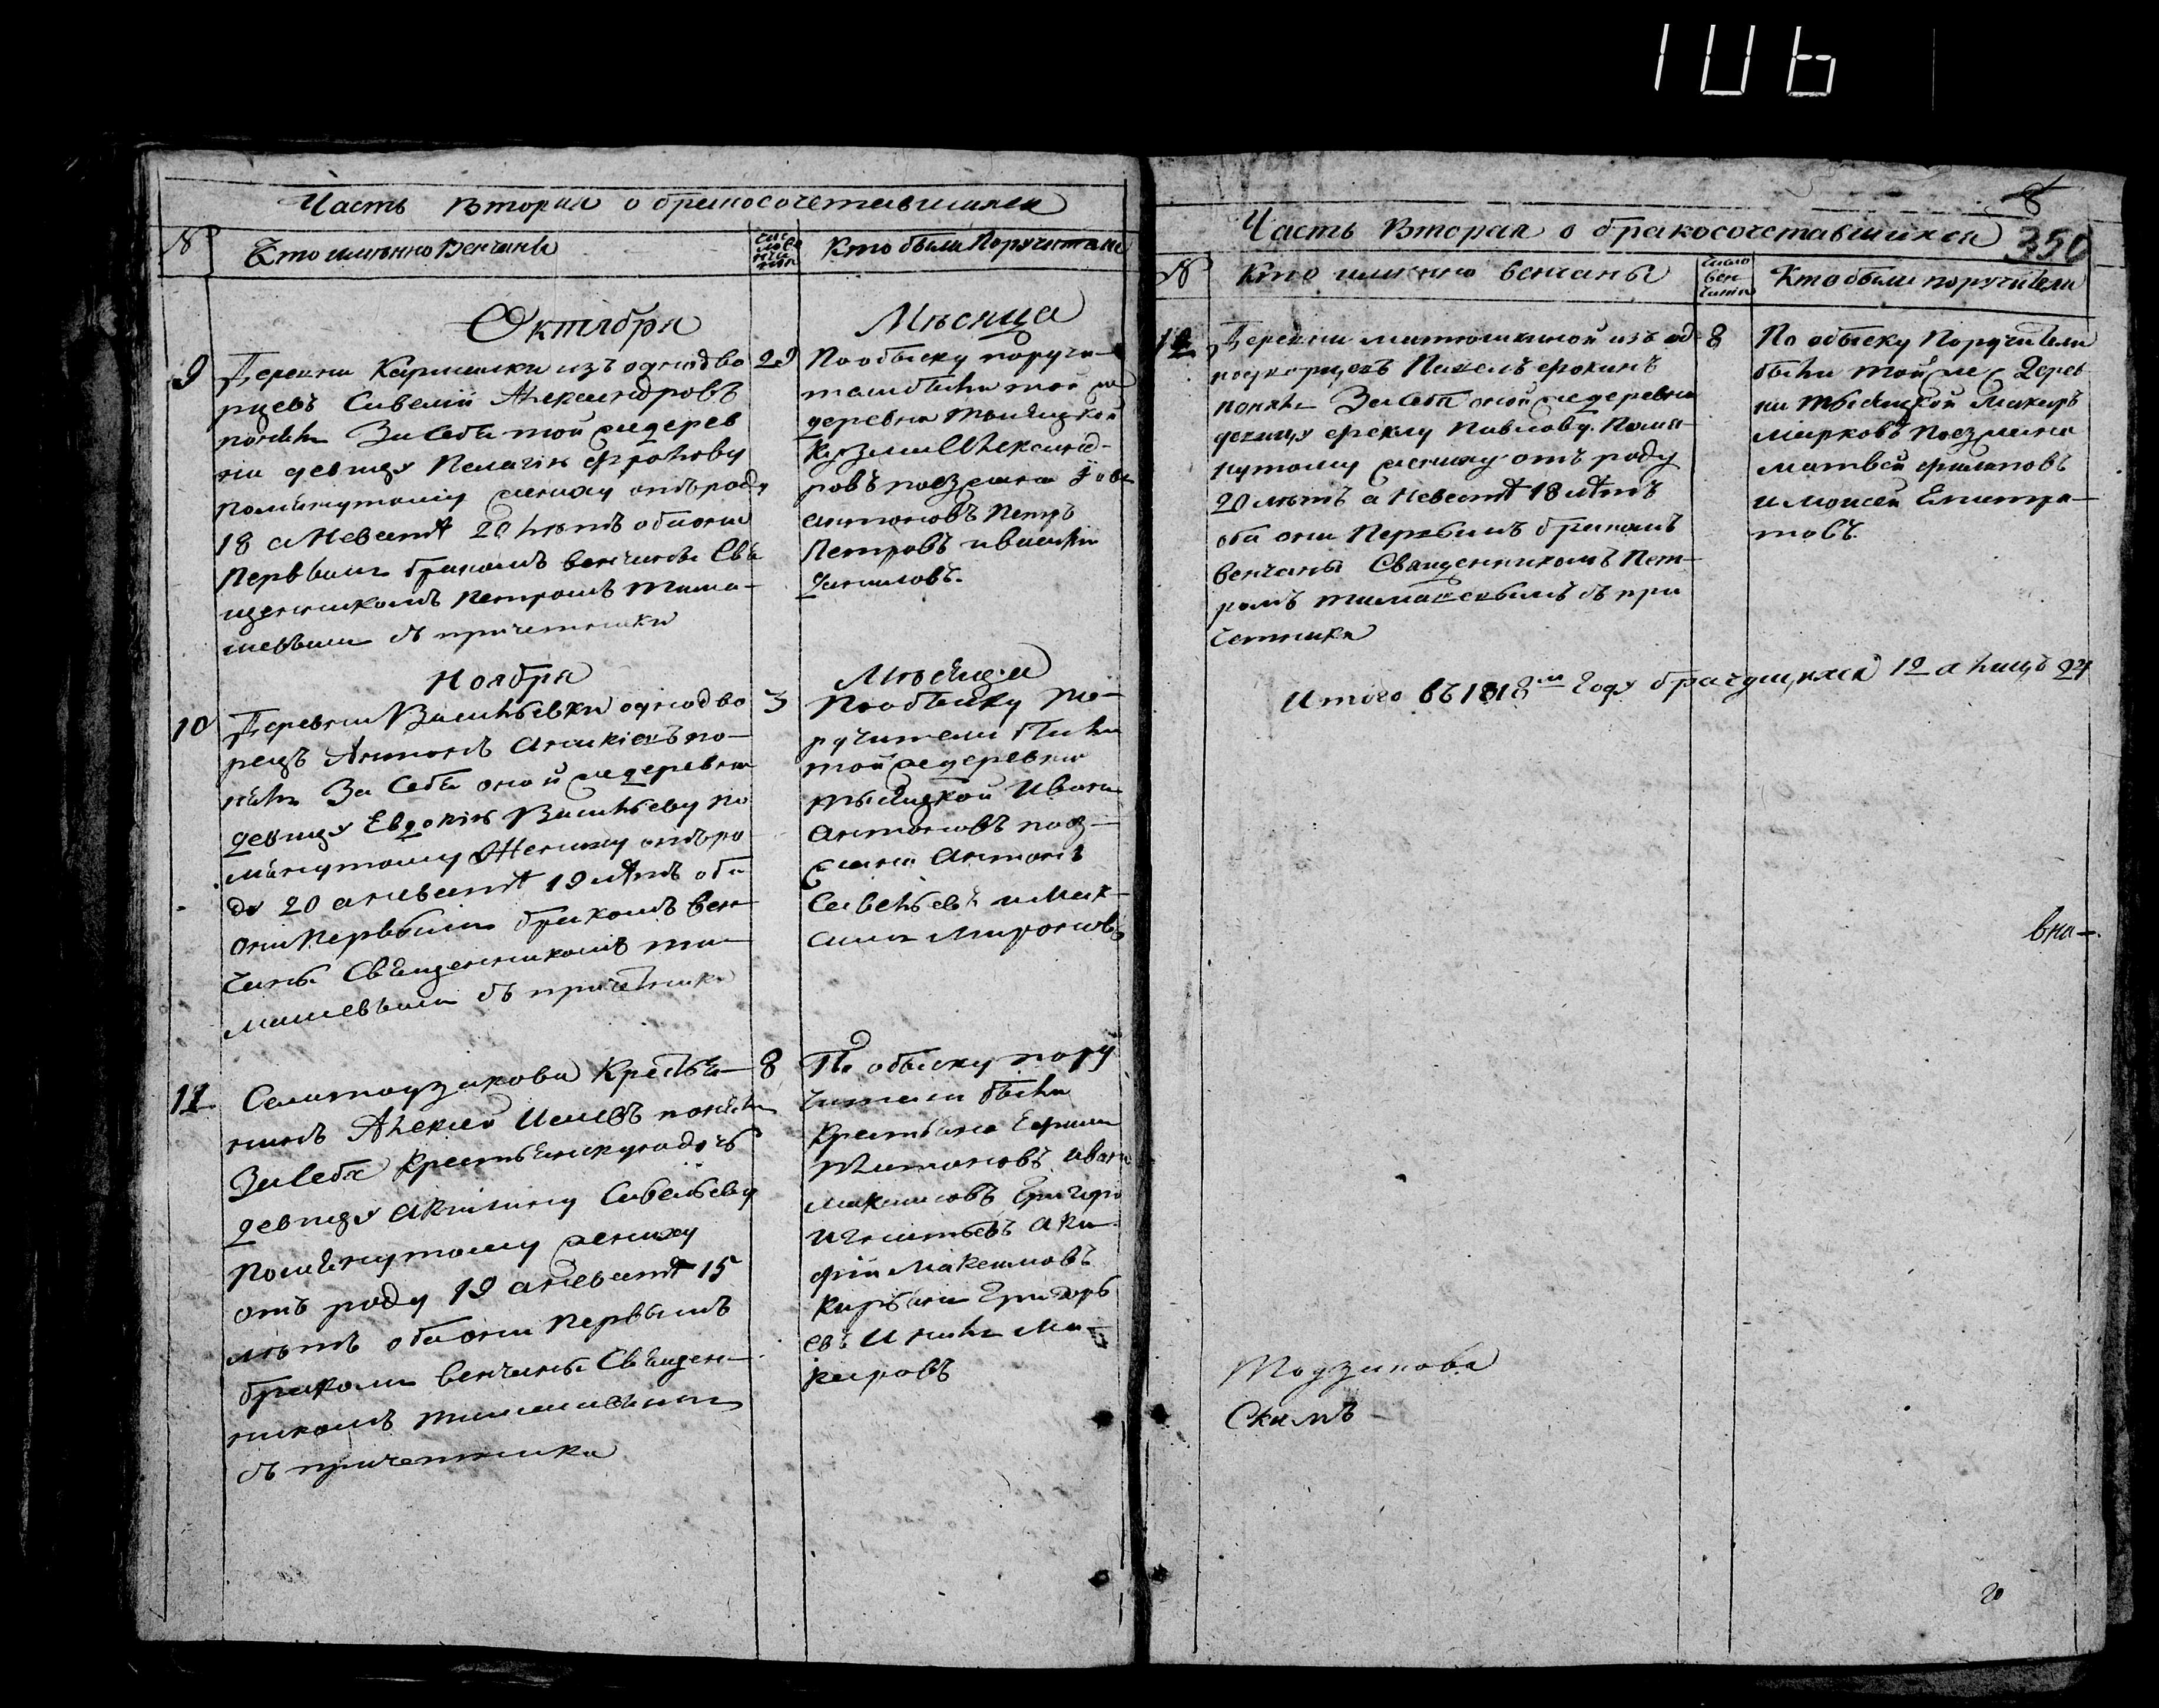 106
Часть вторая о бракосочетавшихся
№
Кто имянно венчаны
Кто были Поручители
Октября
Мѣсяца
9
Деревни Кармалки изъ однодво
рцевъ Савелій Александровъ
понялъ За себя той же дерев
ни девицу Пелагію Фролову
помянутому жениху отъ роду
18 а Невестѣ 20 лѣтъ оба они
Первымъ бракомъ венчаны Свя
щенникомъ Петромъ Тима-
шевымъ съ причетники
29
По обыску поручи-
тели были той же
деревни
Козма Александ-
ровъ поезжана
антоновъ Петръ
Петровъ и василій
даниловъ.
Ноября
Мѣсяца
10
Деревни Васильевки однодво
рецъ Антонъ по-
нялъ За Себя оной же деревни
девицу Евдокію Васильеву по
мянутому Жениху отъ ро
ду 20 а невестѣ 19 лѣтъ оба
они Первымъ бракомъ вен-
чаны Священникомъ Ти-
машевымъ съ причетники
3
По обыску по-
ручители были
той же деревни
Иванъ
антоновъ поез-
жана Антонъ
Савельевъ и Мак-
симъ Мироновъ
11
Села Крестья-
нинъ Алексей понялъ
За себя крестьянскую дочь
девицу Акилину Савельеву
Помянутому жениху
отъ роду 19 а невестѣ 15
лѣтъ оба они первымъ
бракомъ венчаны Священ-
никомъ Тимашевымъ
съ причетники
8
По обыску пору
чители были
Крестьяна Ефимъ
иванъ
максимовъ Григорей
Игнатьевъ
Максимовъ
Григорь
евъ
Часть вторая о бракосочетавшихся
350
№
Кто имянно венчаны
Число
вен-
чанія
Кто были поручители
12
Деревни матюшкиной изъ од-
нодворцовъ Павелъ Фокинъ
понялъ За себя оной же деревни
девицу Феклу Павлову. Помя-
нутому жениху отъ роду
20 лѣтъ а Невестѣ 18 лѣтъ
оба они Первымъ бракомъ
венчаны Священникомъ Пет-
ромъ Тимашевымъ съ при
четники
8
По обыску Поручители
были той же Дерев
ни Макаръ
Марковъ Поезжана
матвей филиповъ
и моисей
Итого въ 1818м Году брачущихся 12 а лицъ 24